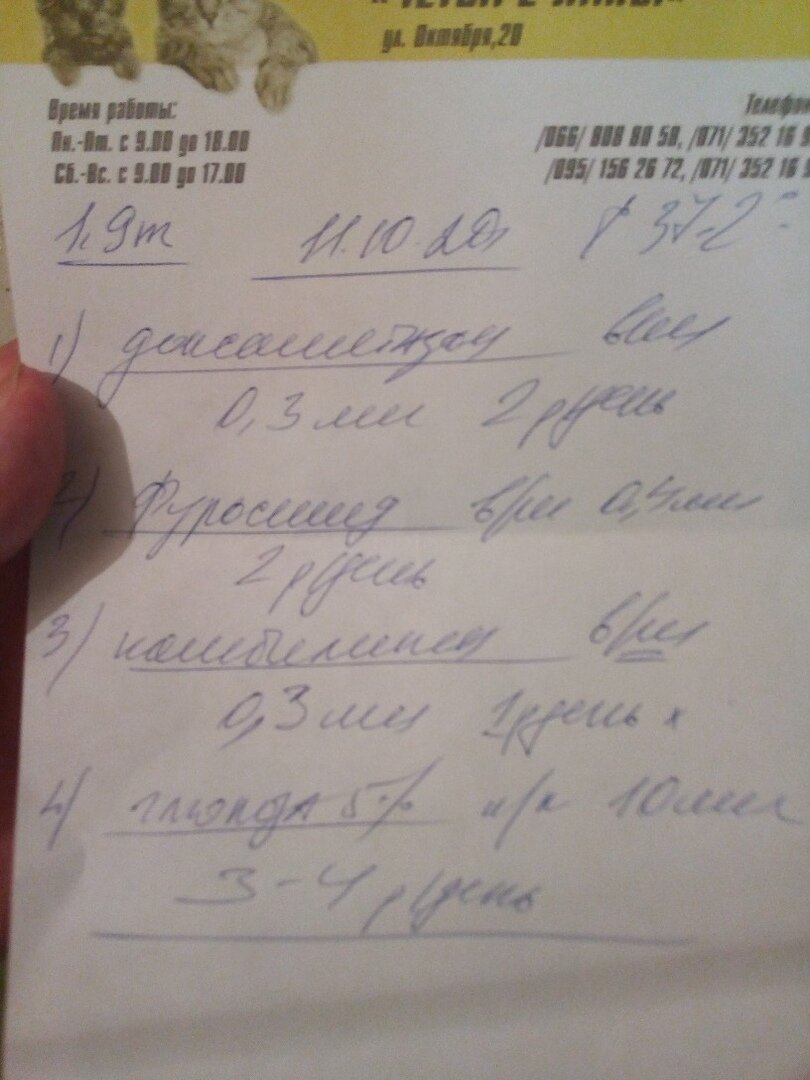 ул. Октября,20
Время работы:
Пн.-Пт. с 9.00 до 18.00
Сб.-Вс. с 9.00 до 17.00
Телефон
/066/ 808 80 50, /071/ 352 16
/095/ 156 26 72, /071/ 352 16
11.10.20г
1) дексаметазон в/м
0,3 мл 2 р/день
2) Фуросемид в/м 0,4 мл
2 р/день
3) комбилипен в/м
0,3 мл 1 р/день
4) глюкоза 5% п/к 10 мл
3-4 р/день